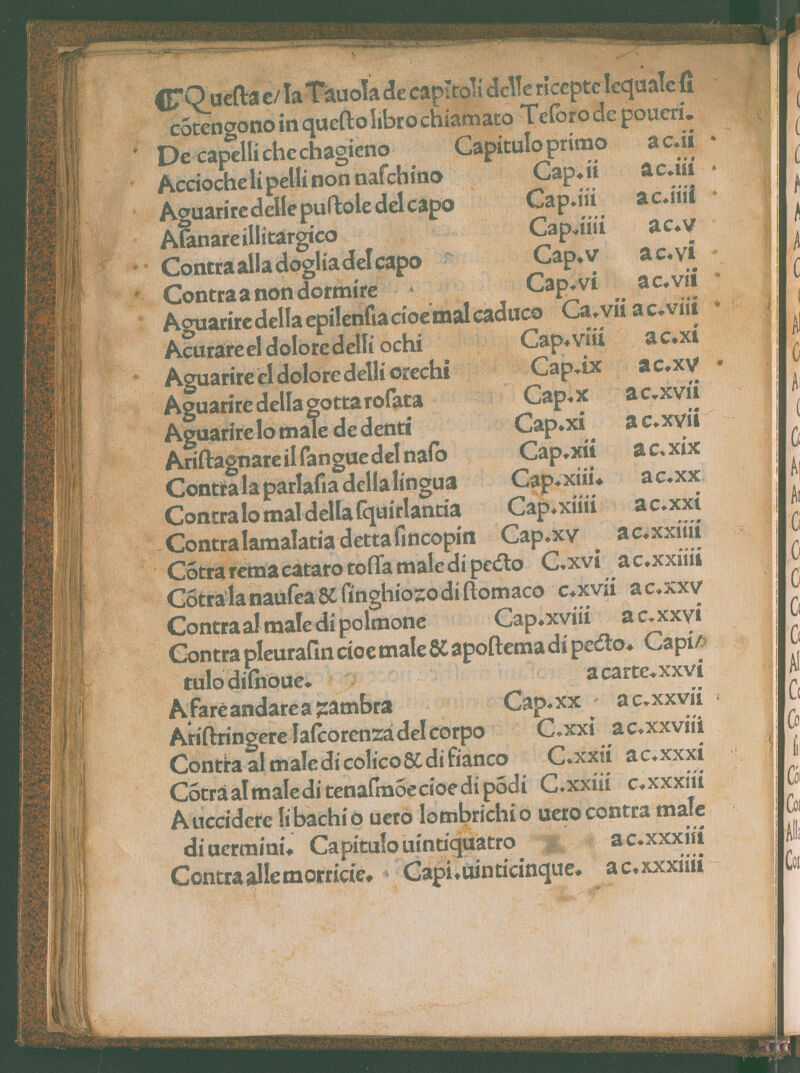 ¶ Queſta e/ la Tauola de capitoli delle ricepte lequale ſi
cõtengono in queſto libro chiamato Teſoro de poueri.
De capelli che chagieno Capitulo primo a c.ii
Acciocheli pelli non naſchino Cap.ii a c.iii
Aguarire delle puſtole del capo Cap.iii a c.iiii
Aſanare illitargico Cap.iiii a c.v
Contra alla doglia del capo Cap.v a c.vi
Contra a non dormire Cap.vi a c.vii
Aguarire della epilenſia cioe mal caduco Ca.vii a c.viii
Acurare el dolore delli ochi Cap.viii a c.xi
Aguarire el dolore delli orechi Cap.ix a c.xv
Aguarire della gotta roſata Cap.x a c.xvii
Aguarire lo male de denti Cap.xi a c.xvii
Ariſtagnare il ſangue del naſo Cap.xii a c.xix
Contra la parlaſia della lingua Cap.xiii. a c.xx
Contra lo mal della ſquirlantia Cap.xiiii a c.xxi
Contra lamalatia detta ſincopin Cap.xv a c.xxiiii
Cõtra rema cataro toſſa male di pecto C.xvi a c.xxiiii
Cõtra la nauſea & ſinghiozo di ſtomaco c.xvii a c.xxv
Contra al male di polmone Cap.xviii a c.xxvi
Contra pleuraſin cioe male & apoſtema di pecto. Capi/
tulo diſnoue. a carte.xxvi
A fare andare a zambra Cap.xx a c.xxvii
Ariſtringere laſcorenza del corpo C.xxi a c.xxviii
Contra al male di colico & di fianco C.xxii a c.xxxi
Cõtra al male di tenaſmõe cioe di põdi C.xxiii c.xxxiii
A uccidere li bachi o uero lombrichi o uero contra male
di uermini. Capitulo uintiquatro a c.xxxiii
Contra alle morricie. Capi.uinticinque. a c.xxxiiii